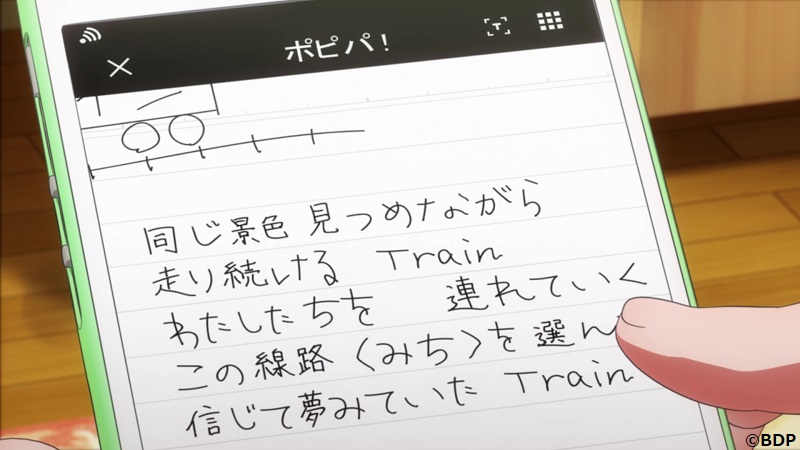 ポピパ!
同じ景色 見つめながら
走り続ける Train
わたしたちを 連れていく
この線路〈みち〉を選ん
信じて夢みていた Train
©BDP